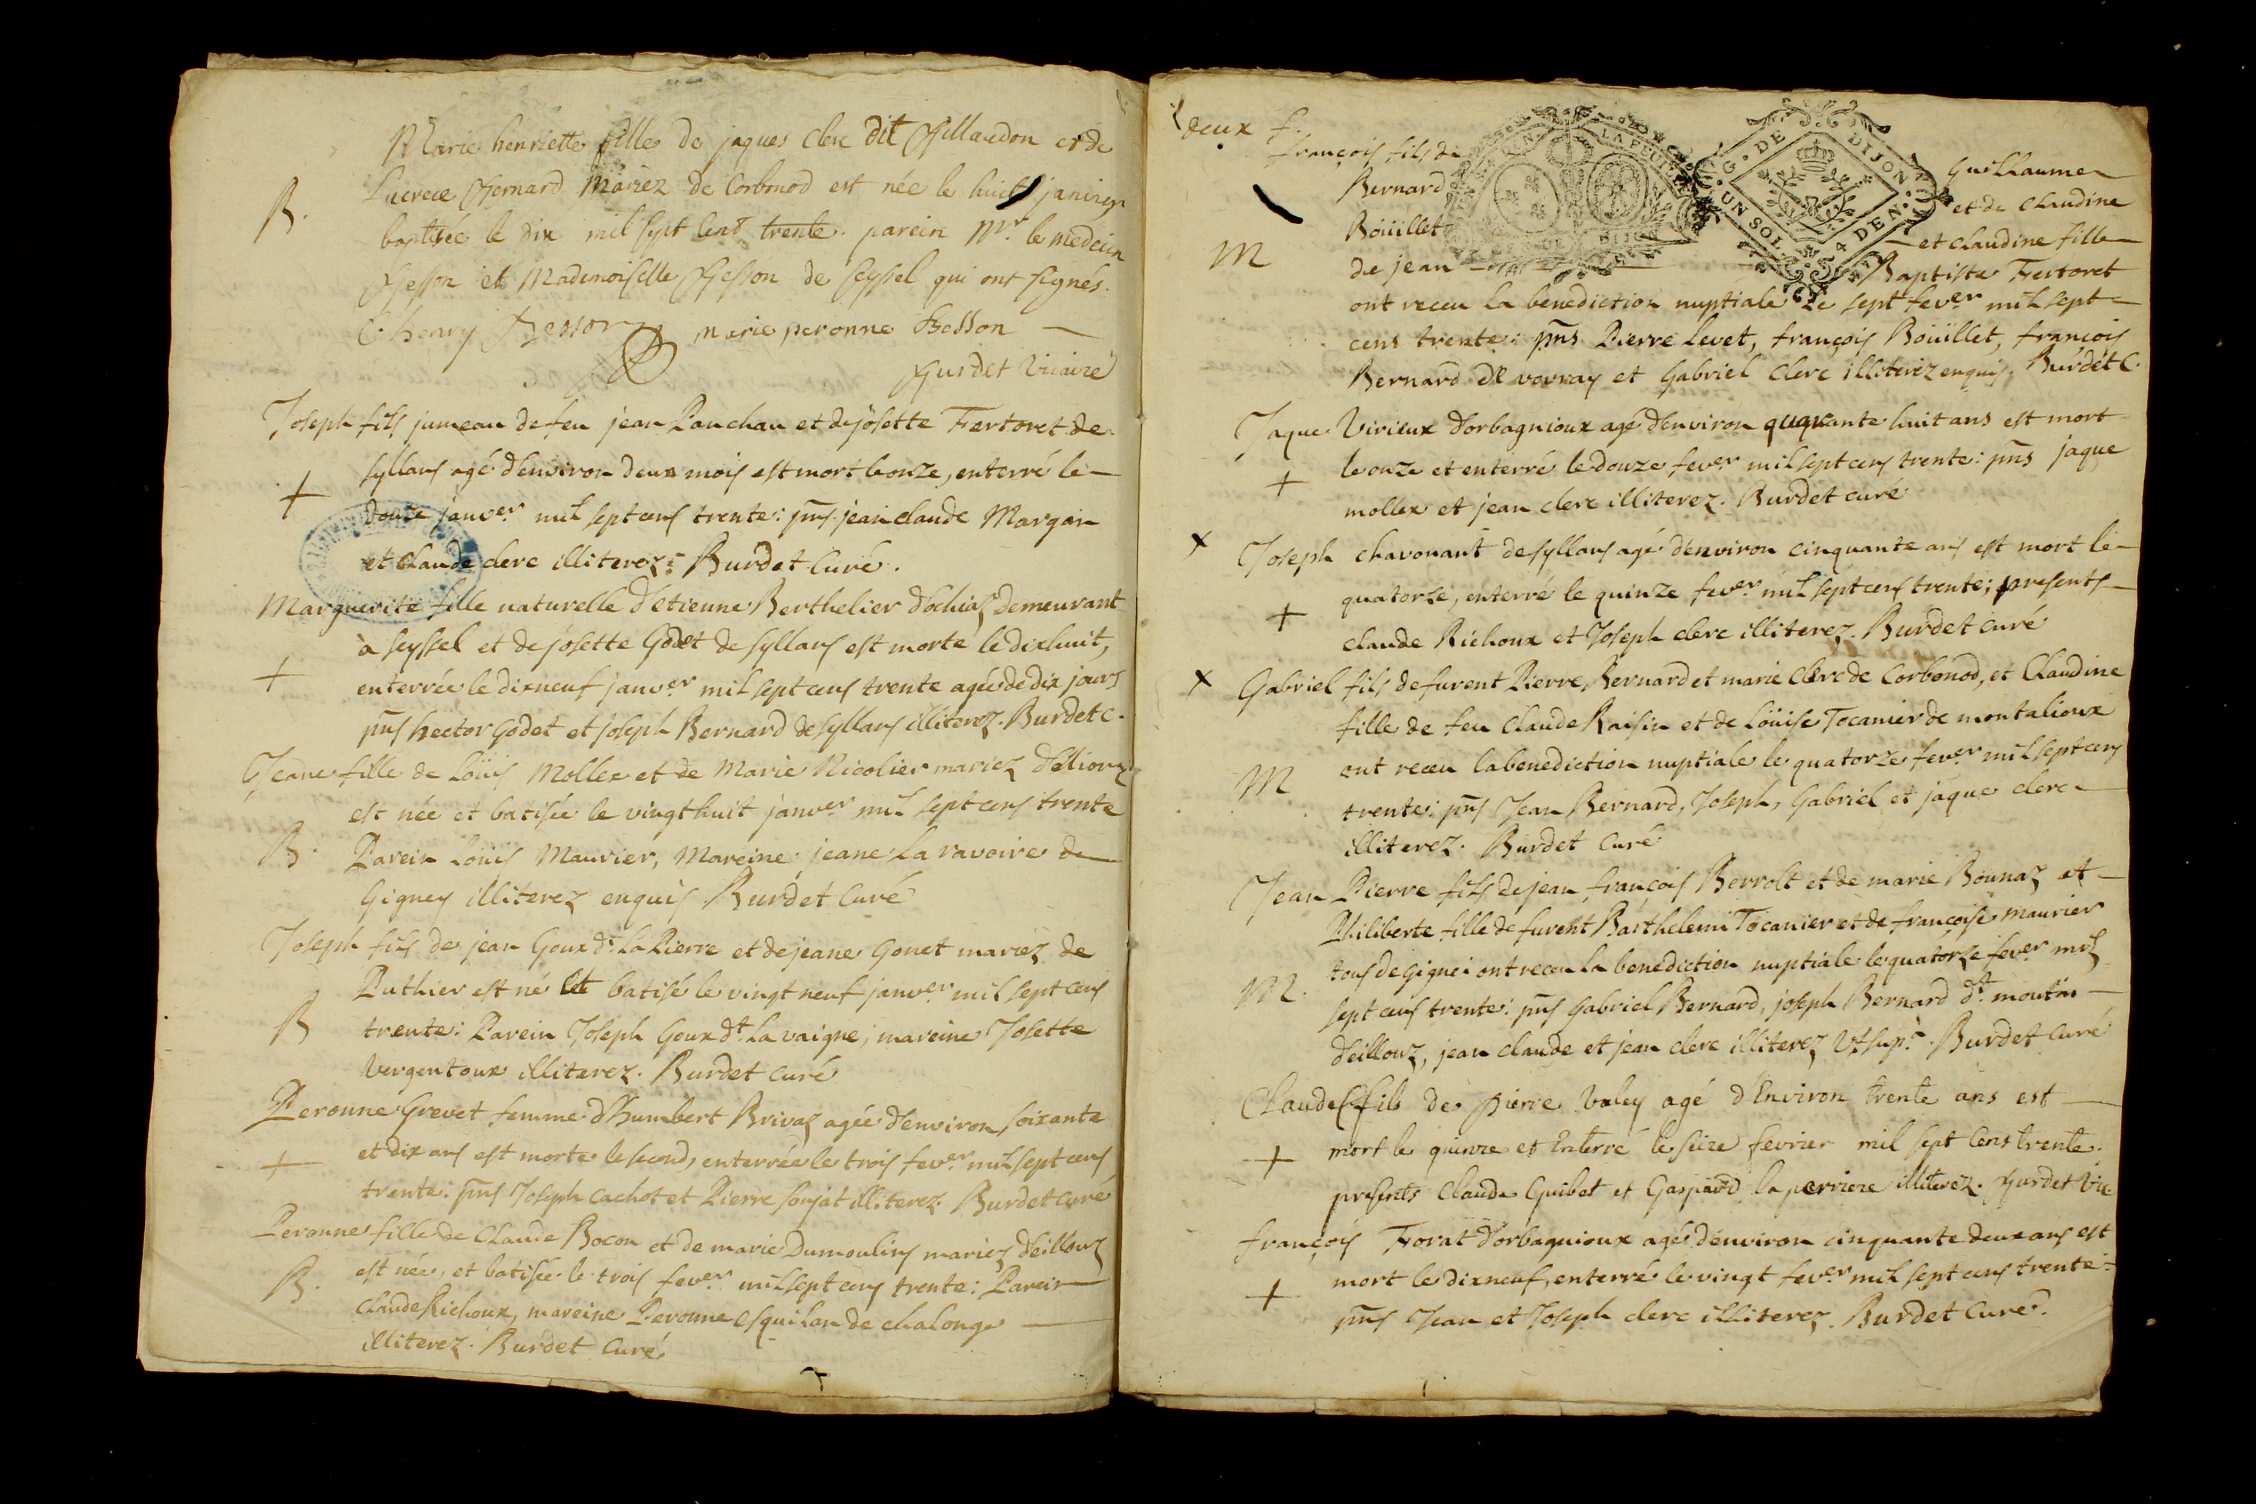 Marie henriette fille de jaques clerc dit Chillaudon et de
Lucrece Bernard Mariez de Corbonod est née le huict janvier
B.
baptisée le dix mil sept cent trente. parein Mr. le medecin
Besson et Mademoiselle Besson de seyssel qui ont signés.
C henry Besson marie peronne Besson
Gurdet Vicaire
Joseph fils jumeau de feu jean Panchau et de josette Fertoret de
syllans agé d'environ deux mois est mort le onze, enterré le
+
douze janver. mil sept cens trente: pns. jean claude Margain
et Claude clerc illiterez: Burdet Curé.
Marguerite fille naturelle d'étienne Berthelier d'ochiaz demeurant
à seyssel et de josette Godet de syllans est morte le dixhuit,
+
enterrée le dixneuf janver. mil sept cens trente agée de dix jours
pns hector Godet et joseph Bernard de syllans illiterez. Burdet C.
Jeane fille de Loüis Mollex et de Marie Nicolier mariez d'élioux
est née et batisée le vingthuit janver. mil sept cens trente
B.
Parein Loüis Maurier, Mareine jeane La ravoire de
Gigney illiterez enquis Burdet Curé
Joseph fils de jean Goux dt. La Pierre et de jeane Gonet mariez de
Puthier est né et batisé le vingt neuf janver. mil sept cens
B
trente: Parein Joseph Goux dt. La vaigne; mareine Josette
Vergentoux illiterez. Burdet curé
Peronne Grevet femme d'humbert Brivaz agée d'environ soixante
et dix ans est morte le second, enterrée le trois fever. mil sept cens
+
trente: pns Joseph Cachot et Pierre sonjat illiterez. Burdet curé
Peronne fille de Claude Bocon et de marie Dumoulin mariez d'eillouz
est née, et batisée le trois fever. mil sept cens trente: Parein
B.
Claude Richoux, mareine Peronne Esquilan de chalonge
illiterez. Burdet Curé
deux f.
françois fils de Guillaume
Bernard et de Claudine
Boüillet et claudine fille
M
de jean Baptiste Fertoret
G. DE DIJON
UN SOL 4 DEN.
ont receu la benediction nuptiale le sept fever. mil sept
cens trente: pns Pierre Levet, françois Boüillet, françois
Bernard de vovray et Gabriel Clerc illiterez enquis, Burdet C.
Jaque Virieux d'orbagnioux agé d'environ quarante huit ans est mort
le onze et enterré le douze fever. mil sept cens trente: pns jaque
+
mollex et jean clerc illiterez. Burdet curé
x
Joseph chavonant de syllans agé d'environ cinquante ans est mort le
quatorze, enterré le quinze fever. mil sept cens trente; presents
+
claude Richoux et Joseph clerc illiterez. Burdet curé
x
Gabriel fils de furent Pierre Bernard et marie Clerc de Corbonod, et Claudine
fille de feu Claude Raisin et de Loüise Tocanier de montalioux
ont receu la benediction nuptiale le quatorze fever. mil sept cens
M
trente: pns Jean Bernard, Joseph, Gabriel et jaque clerc
illiterez. Burdet Curé
Jean Pierre fils de jean françois Berrolt et de marie Bounaz et
Philiberte fille de furent Barthelemi Tocanier et de françoise maurier
tous de Gignei ont receu la benediction nuptiale le quatorze fever. mil
M.
sept cens trente: pns Gabriel Bernard, joseph Bernard dt. moutin
d'eillouz, jean claude et jean clerc illiterez Vt sup.à. Burdet Curé
Claude fils de pierre Valey agé d'Environ trente ans est
+
mort le quinze et Enterré le seize fevrier mil sept Cens trente.
presents Claude Guibet et Gaspard la perriere illiterez. Gurdet Vic
françois Forat d'orbagnioux agé d'environ cinquante deux ans est
+
mort le dixneuf, enterré le vingt fever. mil sept cens trente:
pns Jean et Joseph clerc illiterez. Burdet Curé.